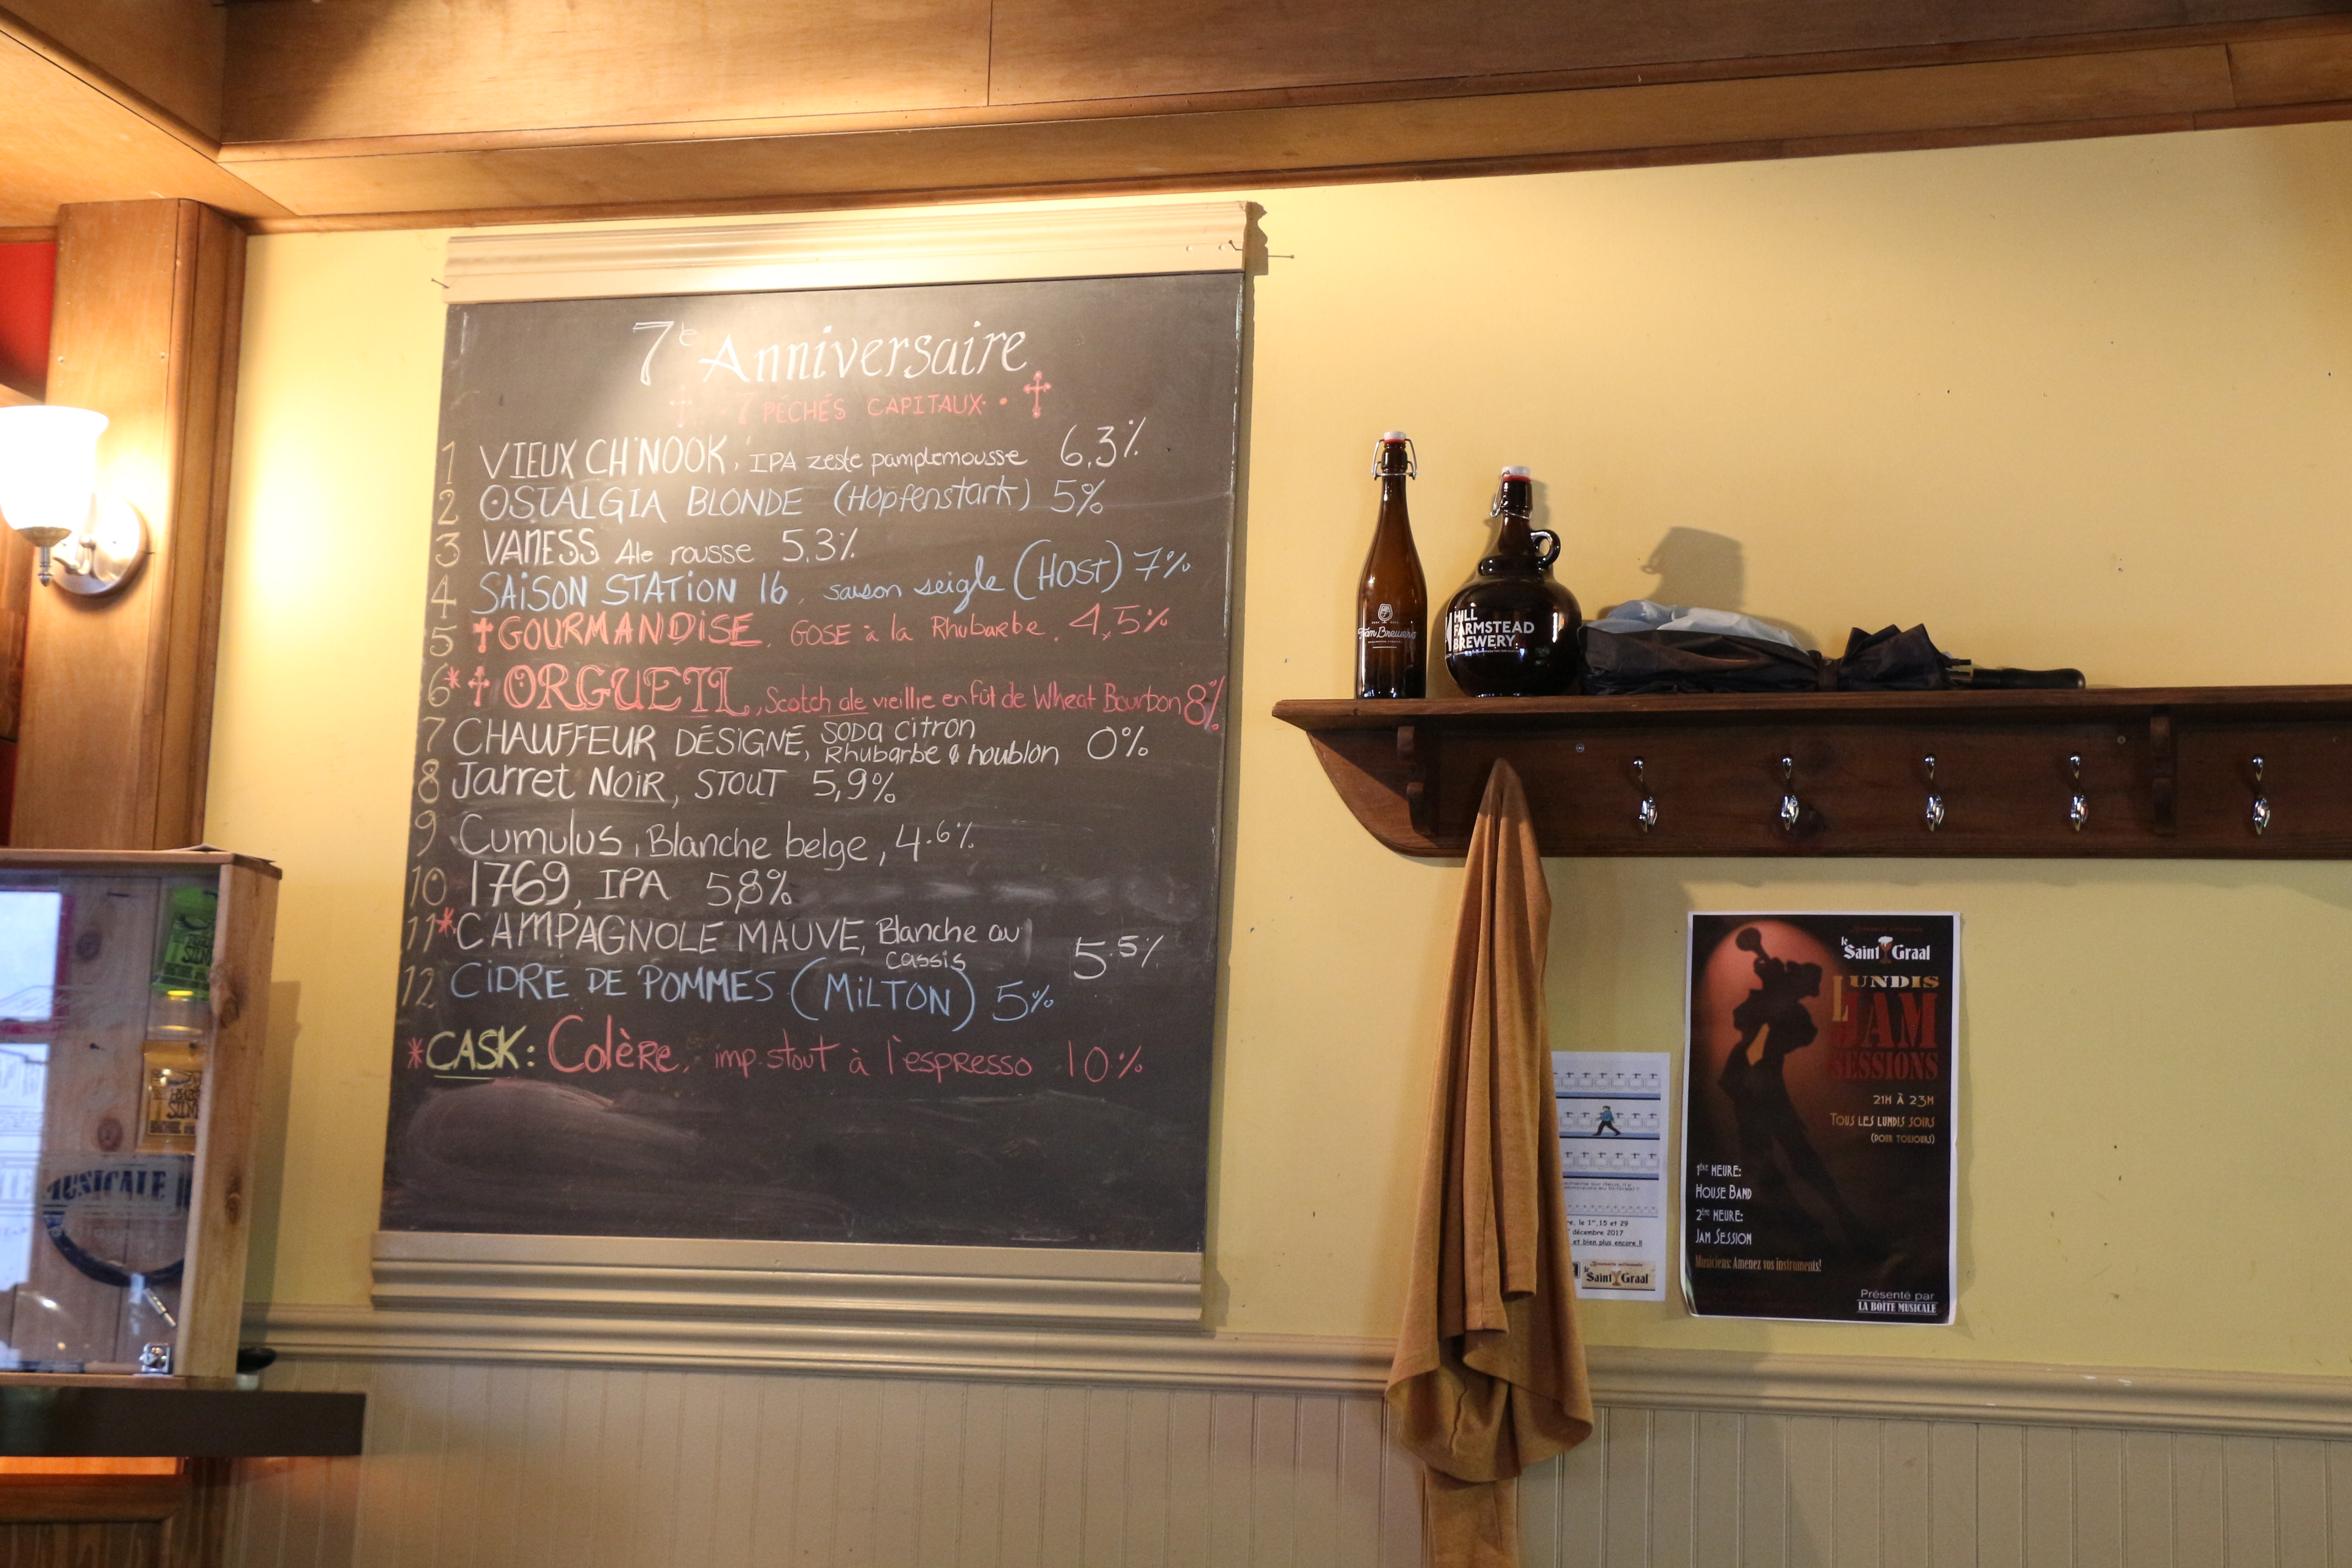 7e Anniversaire
7 PÉCHÉS CAPITAUX
1 VIEUX CHINOOK, IPA zeste pamplemousse 6,3%
2 OSTALGIA BLONDE (Hopfenstark) 5%
3 VANESS Ale rousse 5,3%
4 SAISON STATION 16, saison seigle (HOST) 7%
5 †GOURMANDISE, GOSE à la Rhubarbe, 4,5%
6* † ORGUEIL, Scotch ale vieillie en fût de Wheat Bourbon 8%
7 CHAUFFEUR DÉSIGNÉ, SODA citron
Rhubarbe & houblon 0%
8 Jarret NOIR, STOUT 5,9%
9 Cumulus, Blanche belge, 4.6%
10 1769, IPA 5,8%
11* CAMPAGNOLE MAUVE, Blanche au
cassis 5.5%
12 CIDRE DE POMMES (MILTON) 5%
*CASK: Colère, imp. stout à l'espresso 10%
HILL
FARMSTEAD
BREWERY
le Saint Graal
LUNDIS
JAM
SESSIONS
21H À 23H
TOUS LES LUNDIS SOIRS
(POUR TOUJOURS)
1ère HEURE:
HOUSE BAND
2ème HEURE:
JAM SESSION
Musiciens: Amenez vos instruments!
Présenté par
LA BOÎTE MUSICALE
le 1er, 15 et 29
décembre 2017
et bien plus encore !!
le Saint Graal
MUSICALE